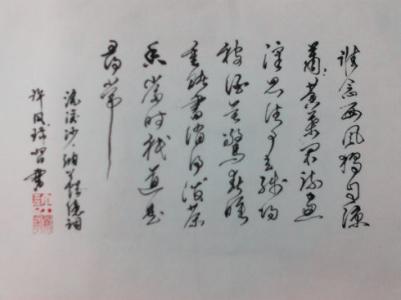 谁念西风独自凉
萧萧黄葉闭疏窗
沉思往事立残阳
被酒莫惊春睡
重赌书消得泼茶
香当时祗道是
寻常
浣溪沙 纳兰词
许风 習書